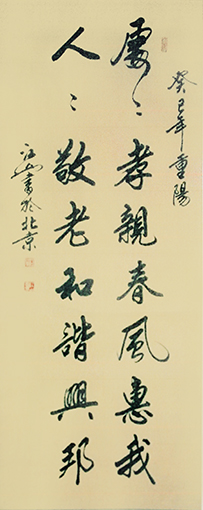 癸巳年重陽
處〻孝親春風惠我
人〻敬老和諧興邦
江山書於北京